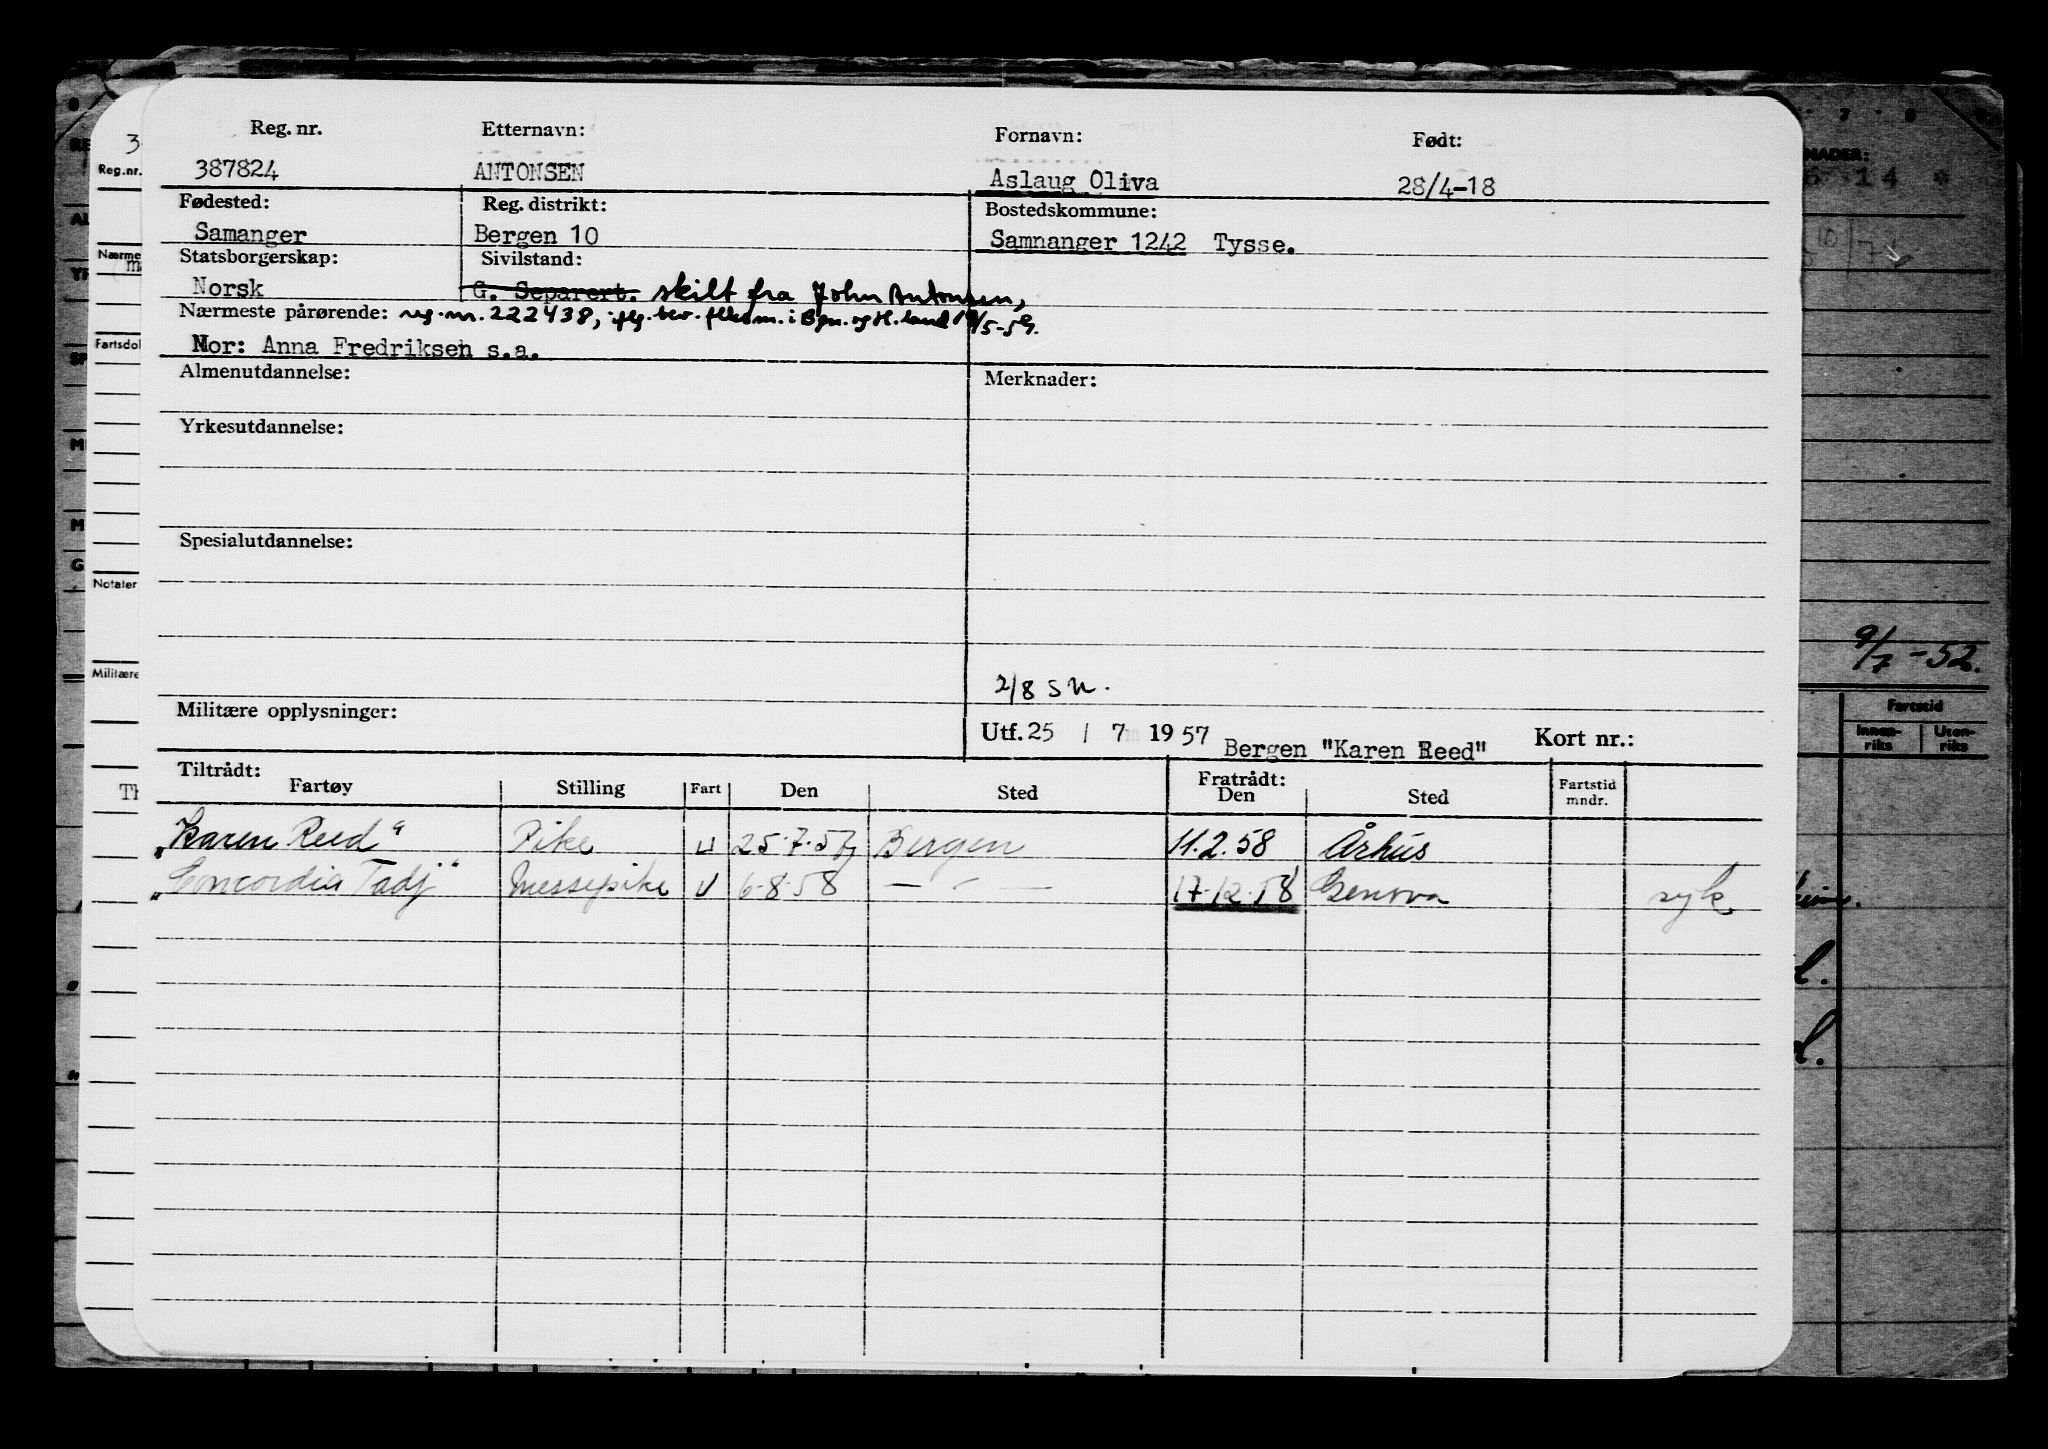 Reg. nr. Etternavn: Fornavn: Født:
387824 ANTONSEN Aslaug Oliva 28/4-18
Fødested: Reg. distrikt: Bostedskommune:
Samanger Bergen 10 Samnanger 1242 Tysse.
Statsborgerskap: Sivilstand:
Norsk G. Separert. skilt fra John Antonsen,
Nærmeste pårørende: reg. nr. 222438, iflg. bev. flkesm. i Bgn. og H.land /5-59.
Mor: Anna Fredriksen s.a.
Almenutdannelse: Merknader:
Yrkesutdannelse:
Spesialutdannelse:
2/8 58.
Militære opplysninger:
Utf. 25 / 7 1957 Bergen "Karen Reed" Kort nr.:
Tiltrådt: Fratrådt:
Fartøy Stilling Fart Den Sted Den Sted Fartstid mndr.
"Karen Reed" Pike U 25.7.57 Bergen 11.2.58 Århus
"Concordia Tadj" Messepike U 6-8-58 — " — 17.12.58 Genova syk
3
Reg.nr.
Nærme
Fartsdol
Notater
Militære
Th
NADER:
14 *
9/7 -52.
Fartstid
Innen-riks Uten-riks